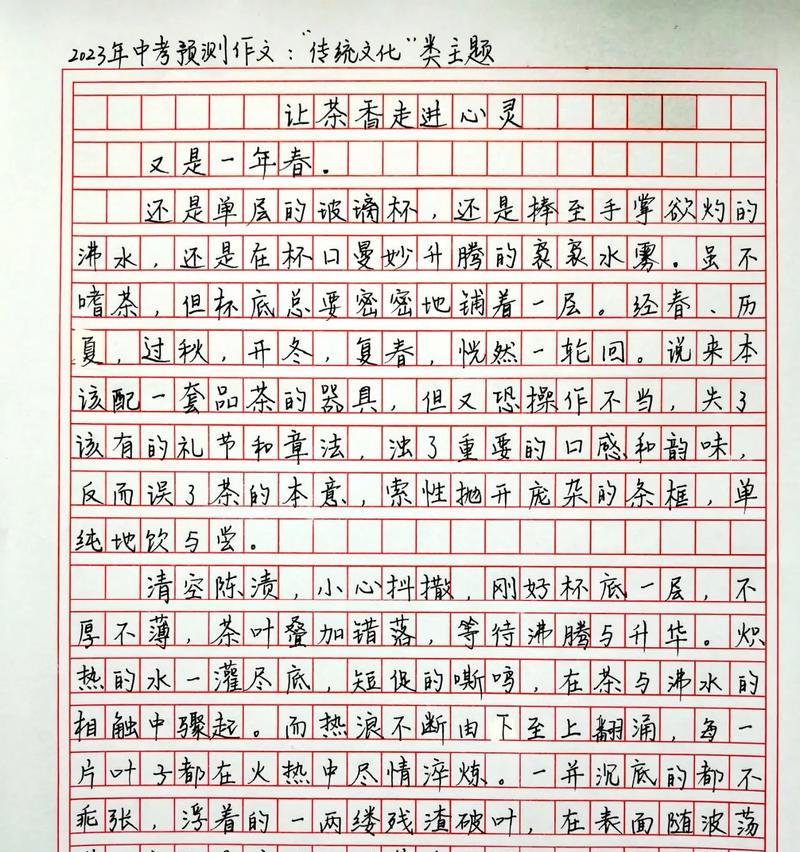 2023年中考预测作文："传统文化"类主题
让茶香走进心灵
又是一年春.
还是单层的玻璃杯，还是捧至手掌欲灼的
沸水，还是在杯口曼妙升腾的袅袅水雾。虽不
嗜茶，但杯底总要密密地铺着一层。经春、历
夏，过秋，开冬，复春，恍然一轮回。说来本
该配一套品茶的器具，但又恐操作不当，失了
该有的礼节和章法，浊了重要的口感和韵味，
反而误了茶的本意，索性抛开庞杂的条框，单
纯地饮与尝。
清空陈渍，小心抖撒，刚好杯底一层，不
厚不薄，茶叶叠加错落，等待沸腾与升华。炽
热的水一灌尽底，短促的嘶鸣，在茶与沸水的
相触中骤起。而热浪不断由下至上翻涌，每一
片叶子都在火热中尽情淬炼。一并沉底的都不
乖张，浮着的一两缕残渣破叶，在表面随波荡